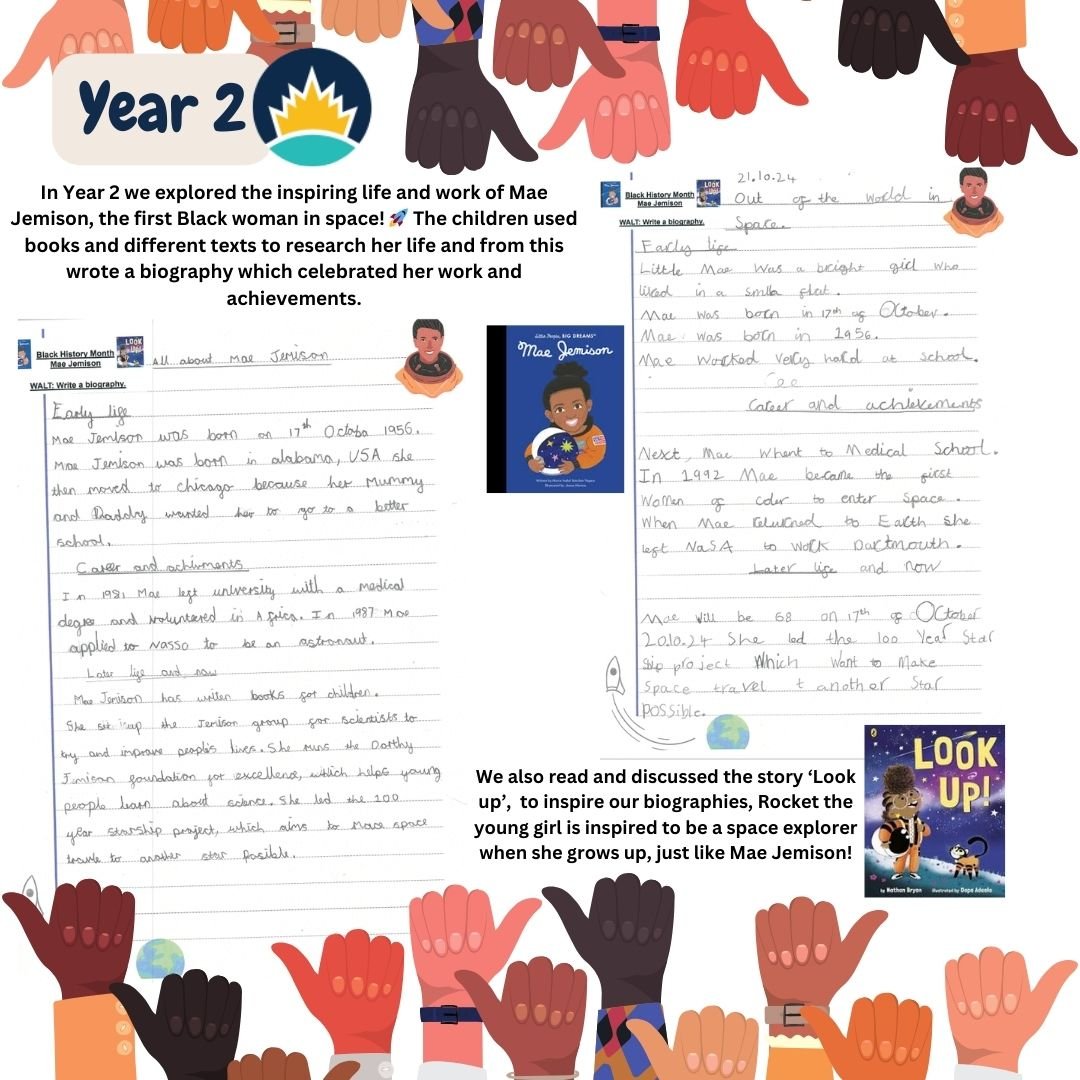 Year 2
In Year 2 we explored the inspiring life and work of Mae
Jemison, the first Black woman in space! 🚀 The children used
books and different texts to research her life and from this
wrote a biography which celebrated her work and
achievements.
Black History Month
Mae Jemison
WALT: Write a biography.
All about Mae Jemison
Early life
Mae Jemison was born on 17th Octoba 1956.
Mae Jemison was born in alabama, USA she
then moved to chicago because her Mummy
and Daddy wanted her to go to a better
school.
Career and achivments
In 1981 Mae left university with a medical
degree and volunteered in Africa. In 1987 Mae
applied to NASSO to be an astronaut.
Later life and now
Mae Jemison has writen books for children.
She set up the Jemison group for scientists to
try and improve people's lives. She runs the Dorthy
Jemison foundation for excellence, which helps young
people learn about science. She led the 100
year starship project, which aims to Mace space
travle to another star posible.
Little People, BIG DREAMS
Mae Jemison
21.10.24
Black History Month
Mae Jemison
LOOK UP!
WALT: Write a biography.
Out of the World in
Space.
Early life
Little Mae was a bright girl who
lived in a smlla flat.
Mae was born in 17th of October.
Mae was born in 1956.
Mae Worked Very hard at school.
Career and achievements
Next, Mae Whent to Medical School.
In 1992 Mae became the first
Women of coler to enter Space.
When Mae returned to Earth she
left NaSA to Work Dartmouth.
Later life and now
Mae Will be 68 on 17th of October
20.10.24 She led the 100 Year Star
Ship project Which Want to Make
Space travel t another Star
possible.
We also read and discussed the story ‘Look
up’, to inspire our biographies, Rocket the
young girl is inspired to be a space explorer
when she grows up, just like Mae Jemison!
LOOK
UP!
by Nathan Bryon
illustrated by Dapo Adeola